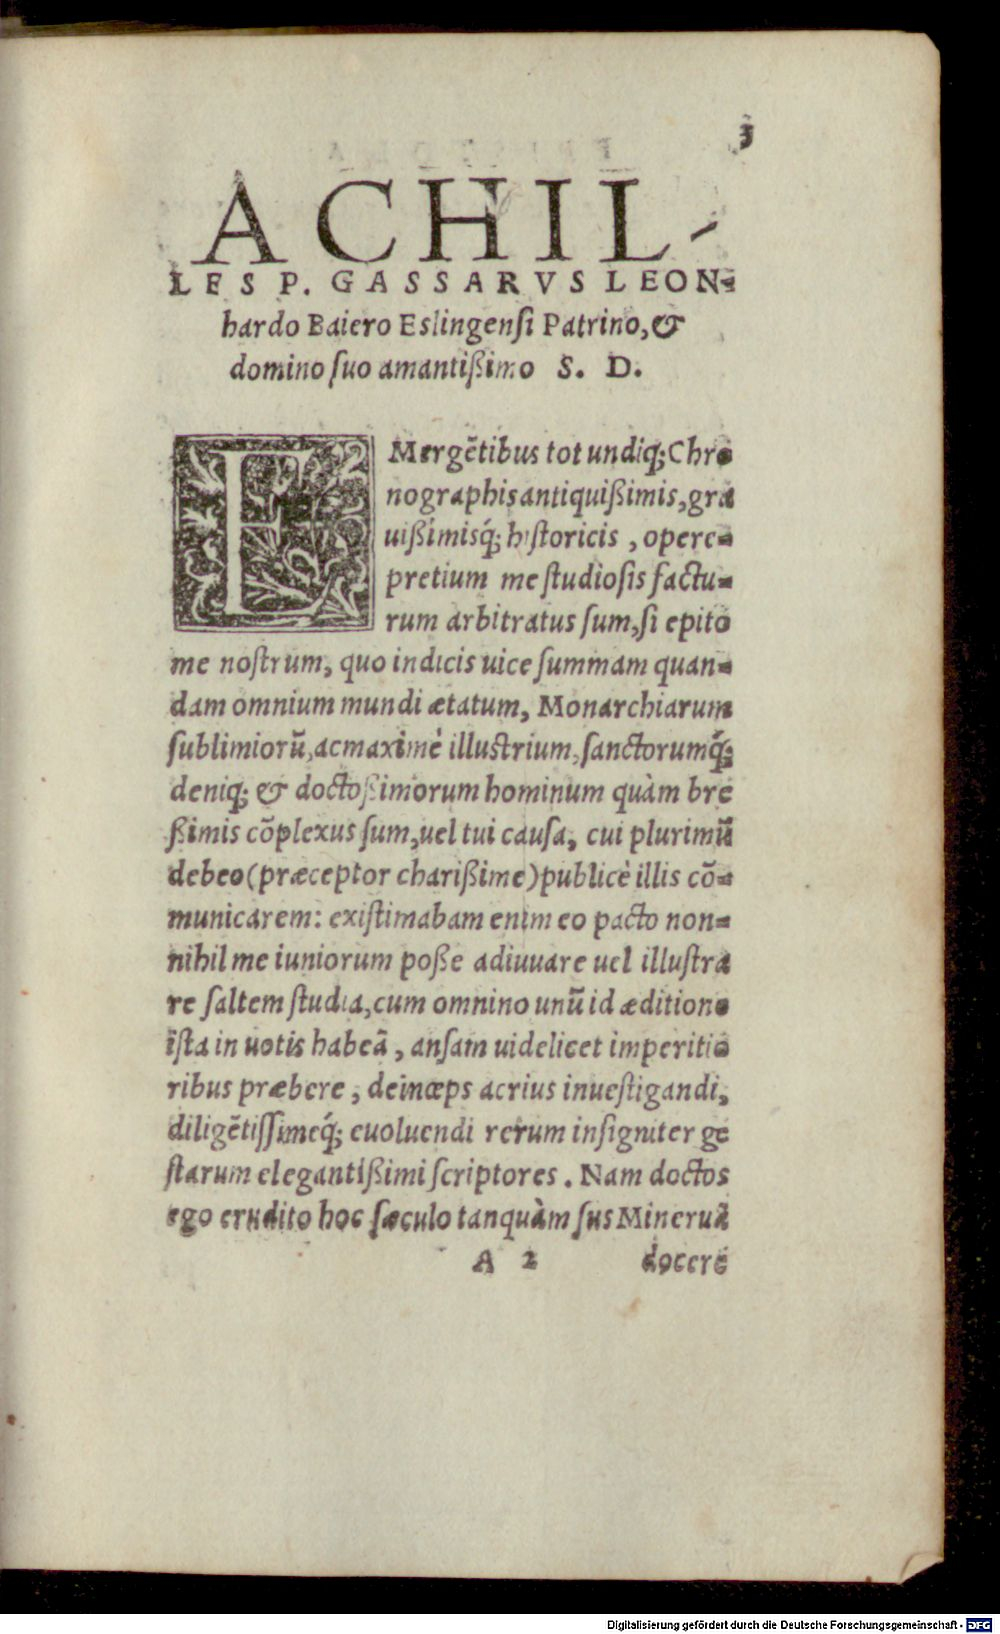 3
ACHIL-
LES P. GASSARVS LEON-
hardo Baiero Eslingensi Patrino, &
domino suo amantißimo S. D.
EMergẽtibus tot undiq; Chro
nographis antiquißimis, gra
uißimisq́; historicis, opere-
pretium me studiosis factu-
rum arbitratus sum, si epito
me nostrum, quo indicis uice summam quan-
dam omnium mundi ætatum, Monarchiarum
sublimiorũ, ac maximè illustrium, sanctorumq́;
deniq; & doctoßimorum hominum quàm bre
ßimis cõplexus sum, uel tui causa, cui plurimũ
debeo (præceptor charißime) publicè illis cõ-
municarem: existimabam enim eo pacto non-
nihil me iuniorum poße adiuuare uel illustra
re saltem studia, cum omnino unũ id æditione
ista in uotis habeã, ansam uidelicet imperitio
ribus præbere, deinceps acrius inuestigandi,
diligẽtissimeq́; euoluendi rerum insigniter ge
starum elegantißimi scriptores. Nam doctos
ego erudito hoc sæculo tanquàm sus Mineruã
A 2 docere
Digitalisierung gefördert durch die Deutsche Forschungsgemeinschaft - DFG